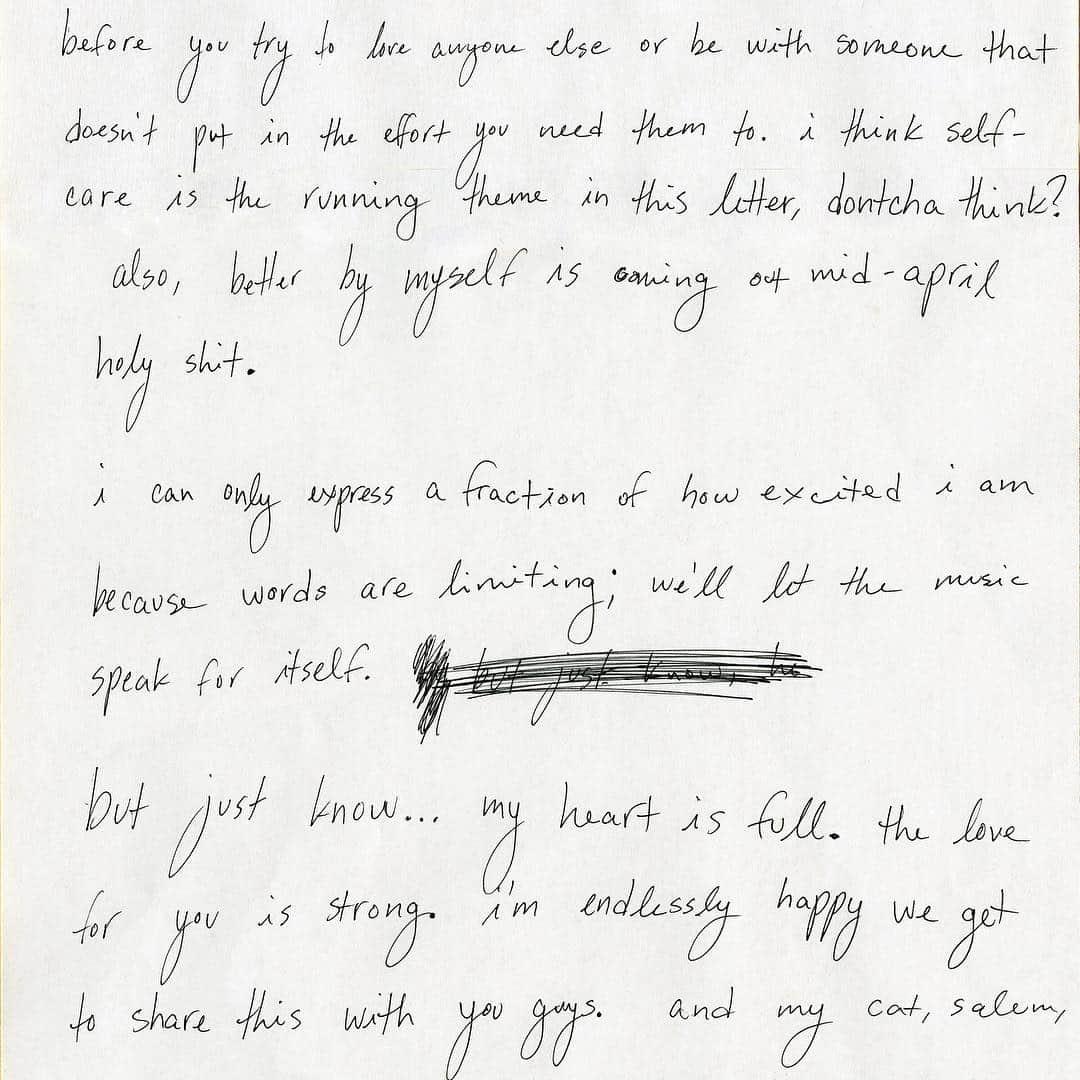 before you try to love anyone else or be with someone that
doesn't put in the effort you need them to. i think self-
care is the running theme in this letter, dontcha think?
also, better by myself is coming out mid-april
holy shit.
i can only express a fraction of how excited i am
because words are limiting; we'll let the music
speak for itself. but just know, he
but just know... my heart is full. the love
for you is strong. i'm endlessly happy we get
to share this with you guys. and my cat, salem,